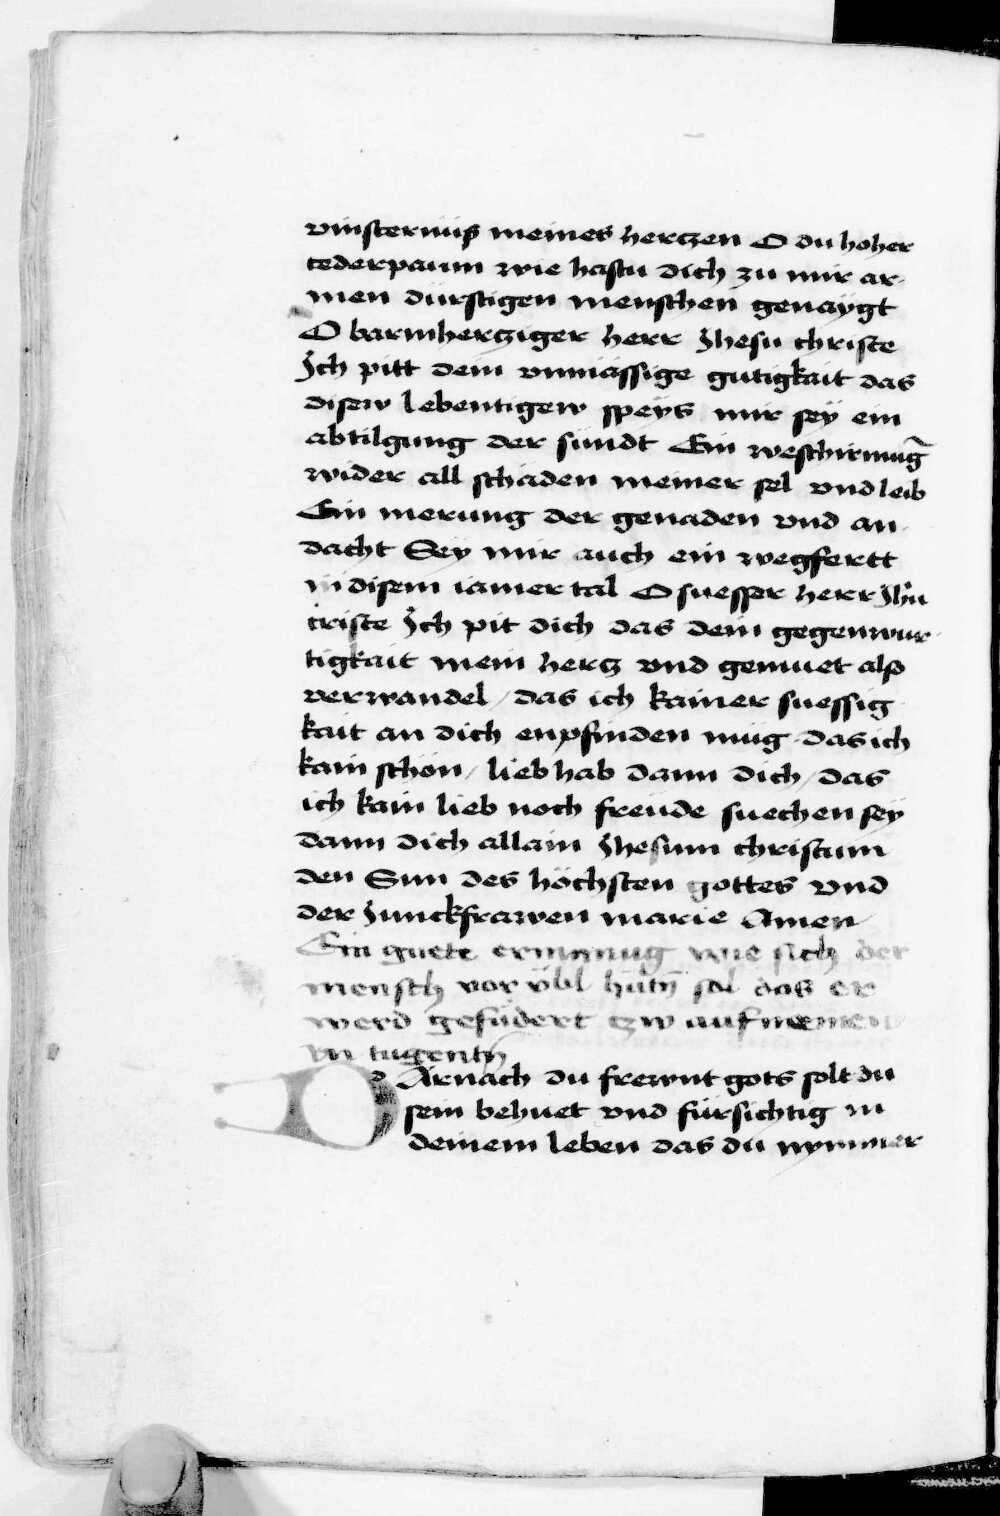 vinsternüß meines hertzen O du hoher
cederpaum wie hastu dich zu mir ar-
men dürstigen menschen genaÿgt
O barmhertziger herr Jhesu christe
Jch pitt dein vnmässige gutigkait das
disew lebentigew speÿs mir seÿ ein
abtilgung der sündt Ein weschirmūg
wider all schäden meiner sel vnd leib
Ein merung der genaden vnd an-
dacht Seÿ mir auch ein wegfertt
in disem iamer tal O suesser herr Jhū
criste Jch pit dich das dein gegenwur-
tigkait mein hertz vnd gemuet also
verwandel / das ich kainer suessig
kait an dich enpfinden müg das ich
kain schön / lieb hab dann dich / das
ich kain lieb noch freüde suechen seÿ
dann dich allain Jhesum christum
den Sun des höchsten gottes vnd
der Junckfrawen marie Amen
Ein guete ermanug wie sich der
mensch vor übl hütn̄ sol das er
werd gefüdert czw aufnemen
in tugentn̄
DArnach du frewnt gots solt du
sein behuet vnd fürsichtig in
deinem leben das du nymmer